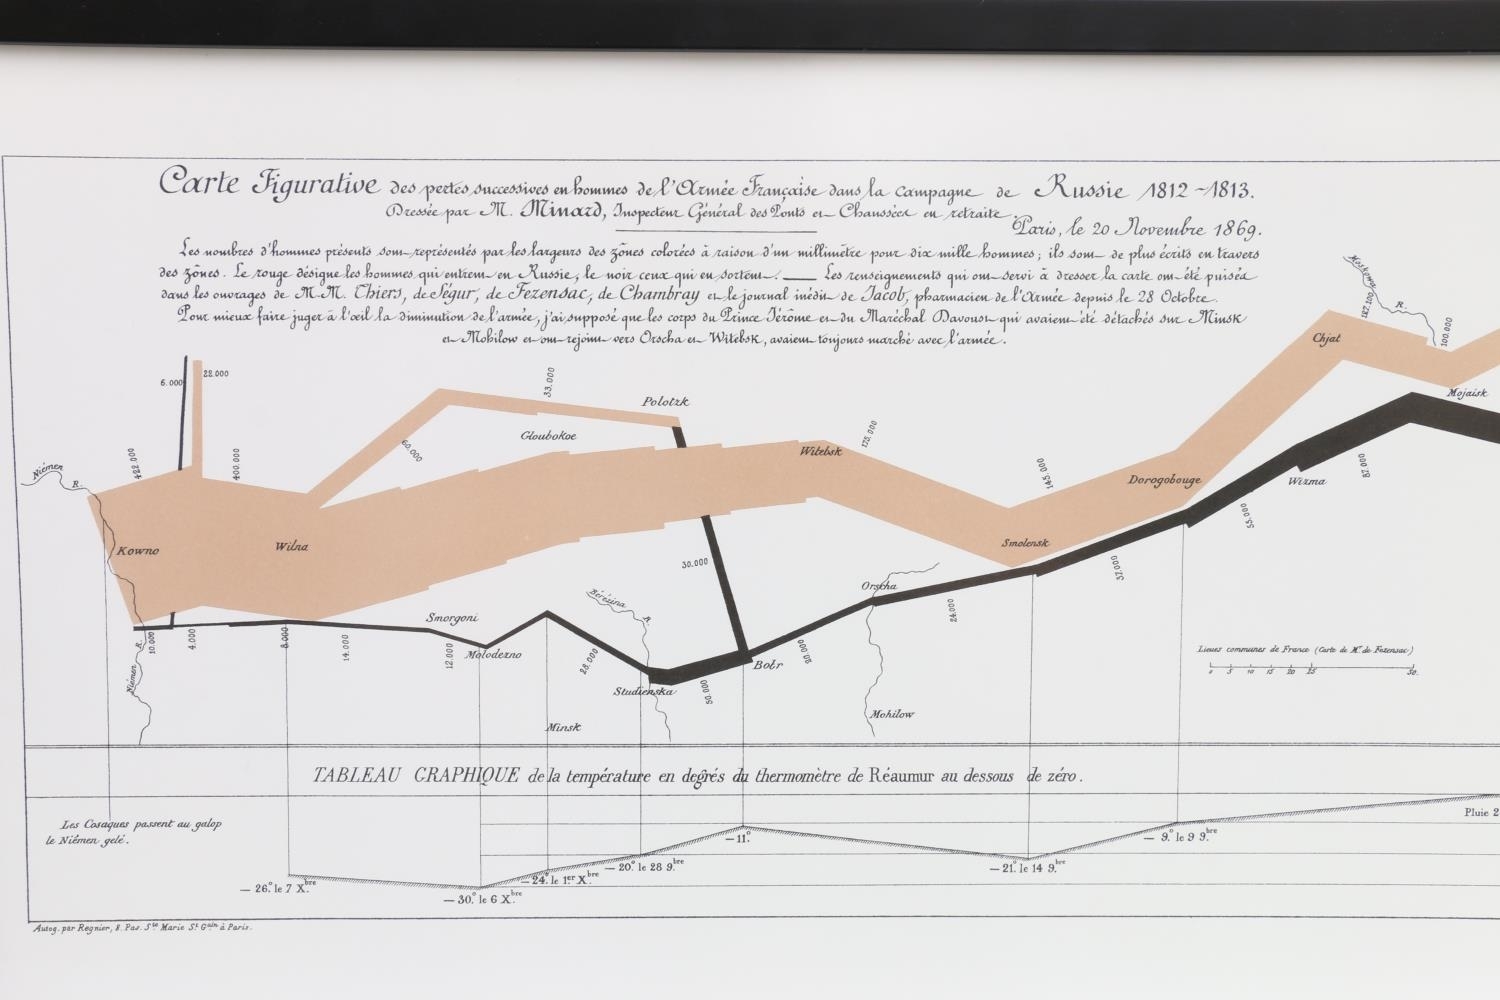 Carte Figurative des pertes successives en hommes de l'Armée Française dans la campagne de Russie 1812-1813.
Dressée par M. Minard, Inspecteur Général des Ponts et Chaussées en retraite.
Paris, le 20 Novembre 1869.
Les nombres d'hommes présents sont représentés par les largeurs des zônes colorées à raison d'un millimètre pour dix mille hommes; ils sont de plus écrits en travers
des zônes. Le rouge désigne les hommes qui entrent en Russie, le noir ceux qui en sortent. — Les renseignements qui ont servi à dresser la carte ont été puisés
dans les ouvrages de M.M. Thiers, de Ségur, de Fezensac, de Chambray et le journal inédit de Jacob, pharmacien de l'Armée depuis le 28 Octobre.
Pour mieux faire juger à l'œil la diminution de l'armée, j'ai supposé que les corps du Prince Jérôme et du Maréchal Davoust qui avaient été détachés sur Minsk
et Mohilow et ont rejoint vers Orscha et Witebsk, avaient toujours marché avec l'armée.
Moskowa R.
187.100
100.000
Chjat
Mojaisk
6.000
22.000
33.000
Polotzk
Gloubokoe
60.000
175.000
Witebsk
422.000
400.000
Niémen R.
145.000
Dorogobouge
Wizma
87.000
55.000
Kowno
Wilna
Smolensk
37.000
30.000
Orscha
24.000
Bérézina R.
Smorgoni
Niémen R.
10.000
4.000
8.000
14.000
12.000
Molodezno
28.000
Studienska
50.000
Bobr
20.000
Mohilow
Minsk
Lieues communes de France (Carte de M. de Fezensac)
0 5 10 15 20 25 50.
TABLEAU GRAPHIQUE de la température en degrés du thermomètre de Réaumur au dessous de zéro.
Les Cosaques passent au galop
le Niémen gelé.
Pluie 2
— 26.° le 7 X.bre
— 30.° le 6 X.bre
— 24.° le 1.er X.bre
— 20.° le 28 9.bre
— 11.°
— 21.° le 14 9.bre
— 9.° le 9 9.bre
Autog. par Regnier, 8. Pas. Ste Marie St Gain à Paris.